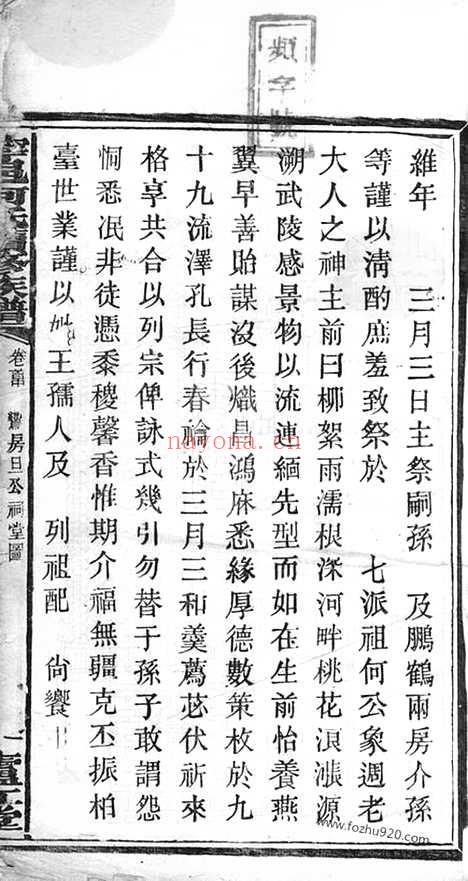 維年　三月三日主祭嗣孫　及鵬鶴兩房介孫
等謹以清酌庶羞致祭於　七派祖何公象週老
大人之神主前曰柳絮雨濡根深河畔桃花浪漲源
溯武陵感景物以流連緬先型而如在生前怡養燕
翼早善貽謀沒後熾昌鴻庥悉緣厚德數策枚於九
十九流澤孔長行春禴於三月三和羹薦苾伏祈來
格享共合以列宗俾詠式幾引勿替于孫子敢謂怨
恫悉泯非徒憑黍稷馨香惟期介福無疆克丕振柏
臺世業謹以　王孺人及　列祖配　尙饗
何氏續修族譜
卷首
鶴房旦公祠堂圖
一
廬江堂
nayona.cn
www.fozhu920.com